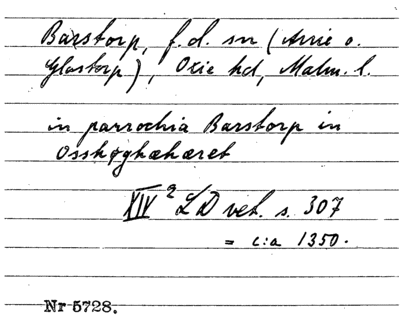 Barstorp, f.d. sn (Arrie o.
Glostorp), Oxie hd, Malm. l.
in parrochia Barstorp in
Osshøghæhæret
XIV 2 LD vet. s. 307
= c:a 1350.
Nr 5728.